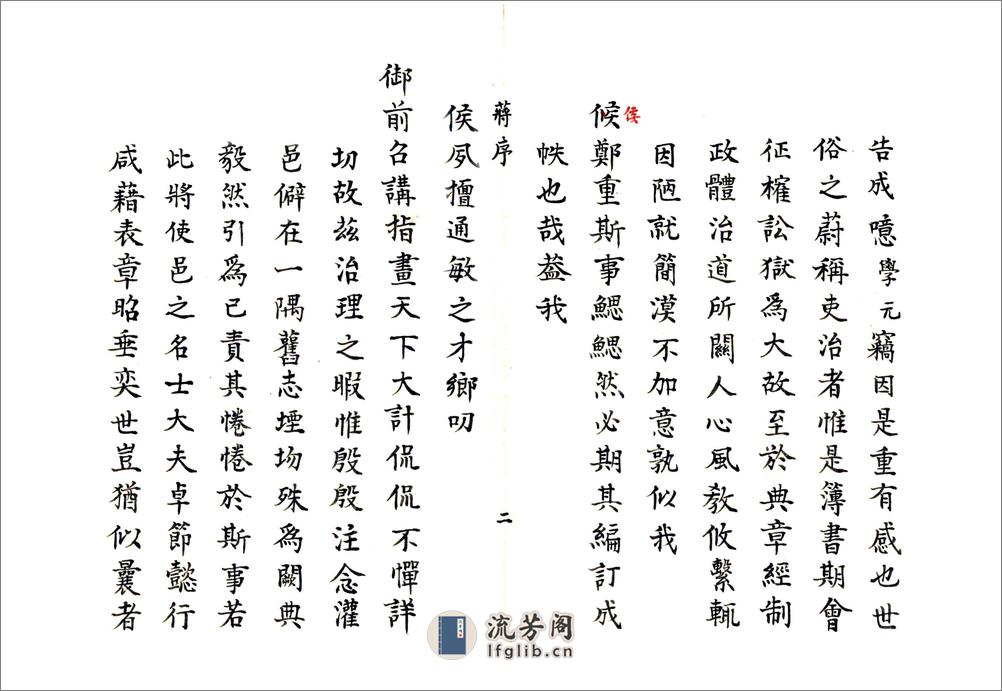 告成噫學元竊因是重有感也世
俗之蔚稱吏治者惟是簿書期會
征榷訟獄為大故至於典章經制
政體治道所關人心風教攸繫輒
因陋就簡漠不加意孰似我
候鄭重斯事鰓鰓然必期其編訂成
侯
帙也哉葢我
蔣序
二
侯夙擅通敏之才鄉叨
御前召講指畫天下大計侃侃不憚詳
切故茲治理之暇惟殷殷注念灌
邑僻在一隅舊志堙圽殊為闕典
毅然引為已責其惓惓於斯事若
此將使邑之名士大夫卓節懿行
咸藉表章昭垂奕世豈猶似曩者
流芳阁
lfglib.cn